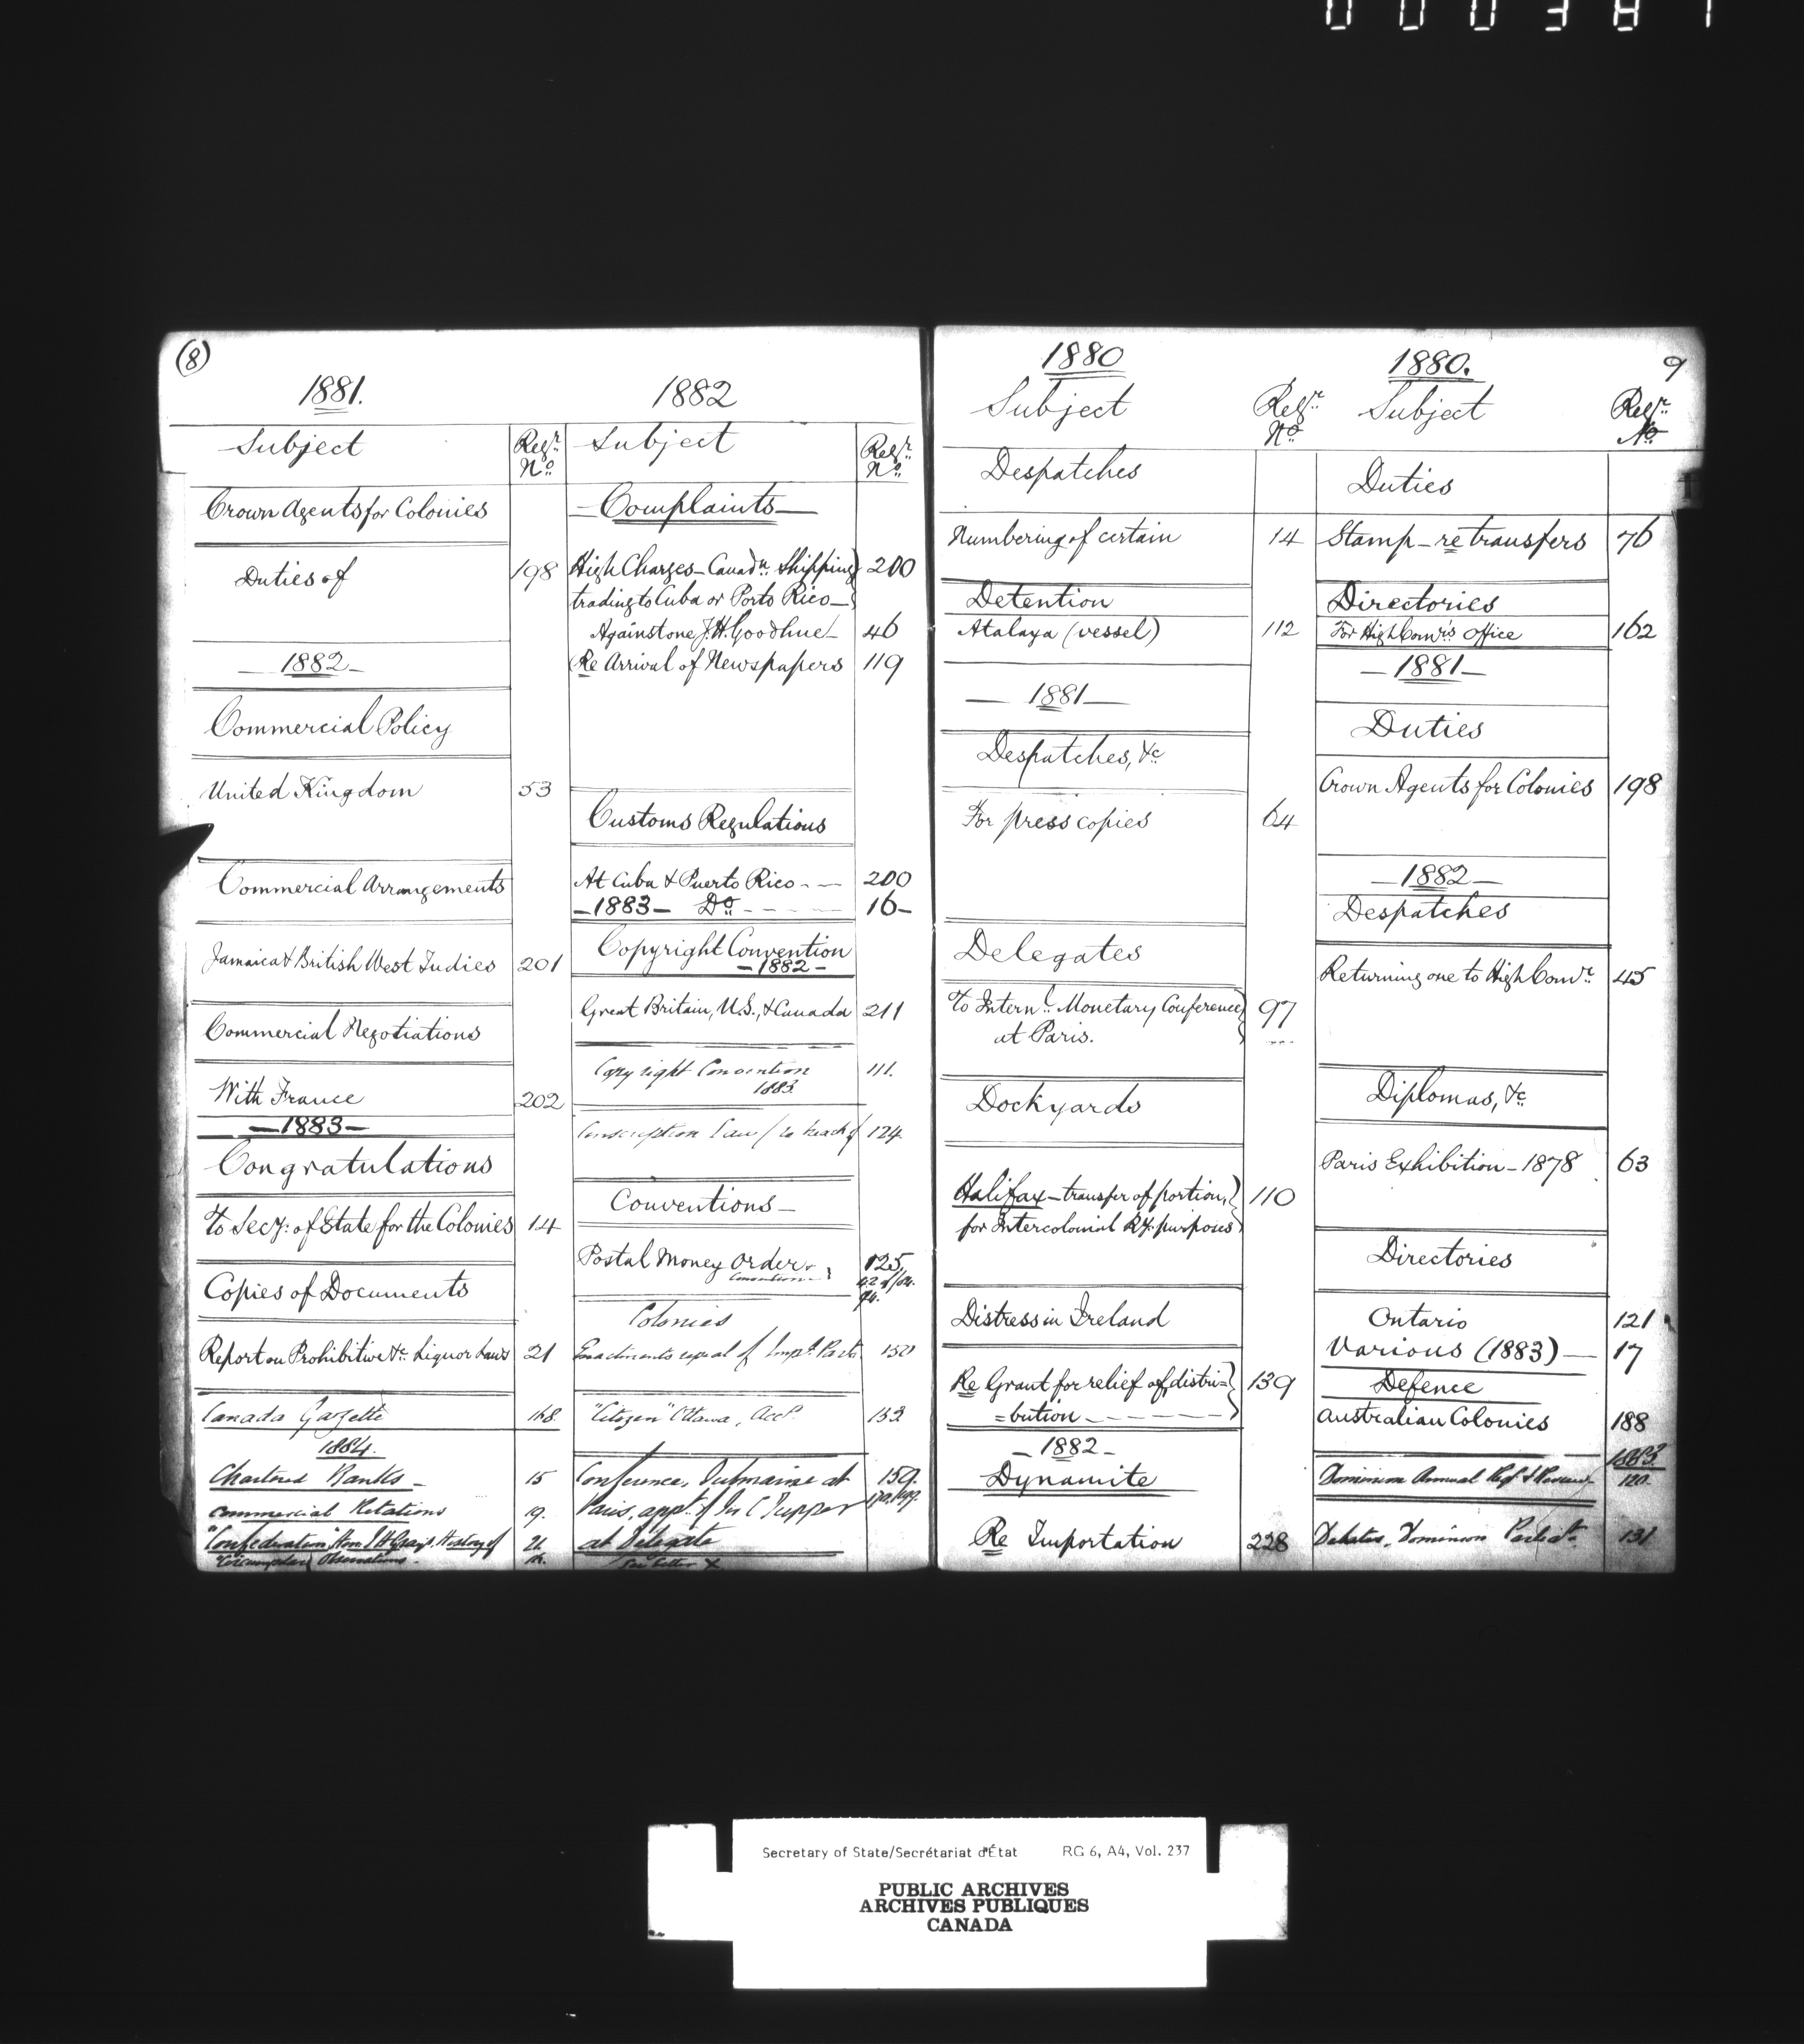 000387
(8)
1881.
Subject
Regr. No.
Crown Agents for Colonies
Duties of 198
— 1882 —
Commercial Policy
United Kingdom 53
Commercial Arrangements
Jamaica & British West Indies 201
Commercial Negotiations
With France 202
— 1883 —
Congratulations
To Secy: of State for the Colonies 14
Copies of Documents
Report on Prohibitive &c. Liquor Laws 21
Canada Gazette 168
1884.
Chartered Banks — 15
Commercial Relations 19.
"Confederation", Hon. J H Gray's History of 21.
"Circumpolar" Observations.
1882
Subject
Regr. No.
— Complaints —
High Charges — Canadn. Shipping } 200
trading to Cuba or Porto Rico — }
Against one J. H. Goodhue — 46
(Re Arrival of Newspapers 119
Customs Regulations
At Cuba & Puerto Rico - - — 200
— 1883 — Do - - - — 16 —
Copyright Convention
— 1882 —
Great Britain, U.S., & Canada 211
Copyright Convention 111.
1883.
Conscription Law 124.
Conventions —
Postal Money Order 125,
Convention
Colonies
Enactments repeal of Impl. Parlt. 150
"Citizen" Ottawa, Acct. 153
Conference, Submarine at 159.
Paris, appt. of Sir C Tupper
at Delegate
See Letter
1880
Subject
Regr. No.
Despatches
Numbering of certain 14
Detention
Atalaya (vessel) 112
— 1881 —
Despatches, &c.
For press copies 64
Delegates
To Internl. Monetary Conference } 97
at Paris.
Dockyards
Halifax — transfer of portion, } 110
for Intercolonial Ry. purposes }
Distress in Ireland
Re Grant for relief of, distri= } 139
=bution - - - - - - }
— 1882 —
Dynamite
Re Importation 228
9
1880.
Subject
Regr. No.
Duties
Stamp — re transfers 76
Directories
For High Comr's Office 162
— 1881 —
Duties
Crown Agents for Colonies 198
— 1882 —
Despatches
Returning one to High Comr. 45
Diplomas, &c.
Paris Exhibition — 1878 63
Directories
Ontario 121
Various (1883) — 17
Defence
Australian Colonies 188
1883.
Dominion Annual Regr. & Review 120.
Debates, Dominion Parlt. 131
Secretary of State/Secrétariat d'État RG 6, A4, Vol. 237
PUBLIC ARCHIVES
ARCHIVES PUBLIQUES
CANADA